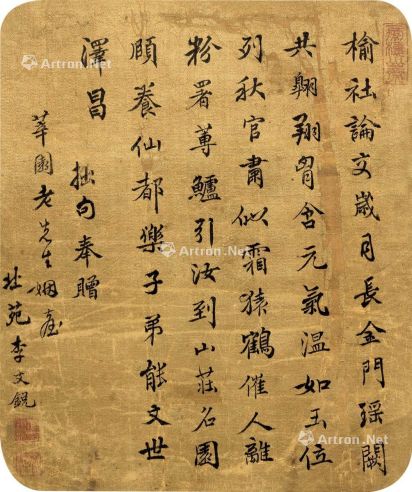 榆社論文歲月長金門瑶闕
共翱翔胷含元氣溫如玉位
列秋官肅似霜猿鶴催人離
粉署蓴鱸引汝到山莊名園
頤養仙都樂子弟能文世
澤昌
拙句奉贈
莘園老先生姻臺
苑李文銳
Artron.Net
Artron.Net
Artron.Net
Artron.Net
Artron.Net